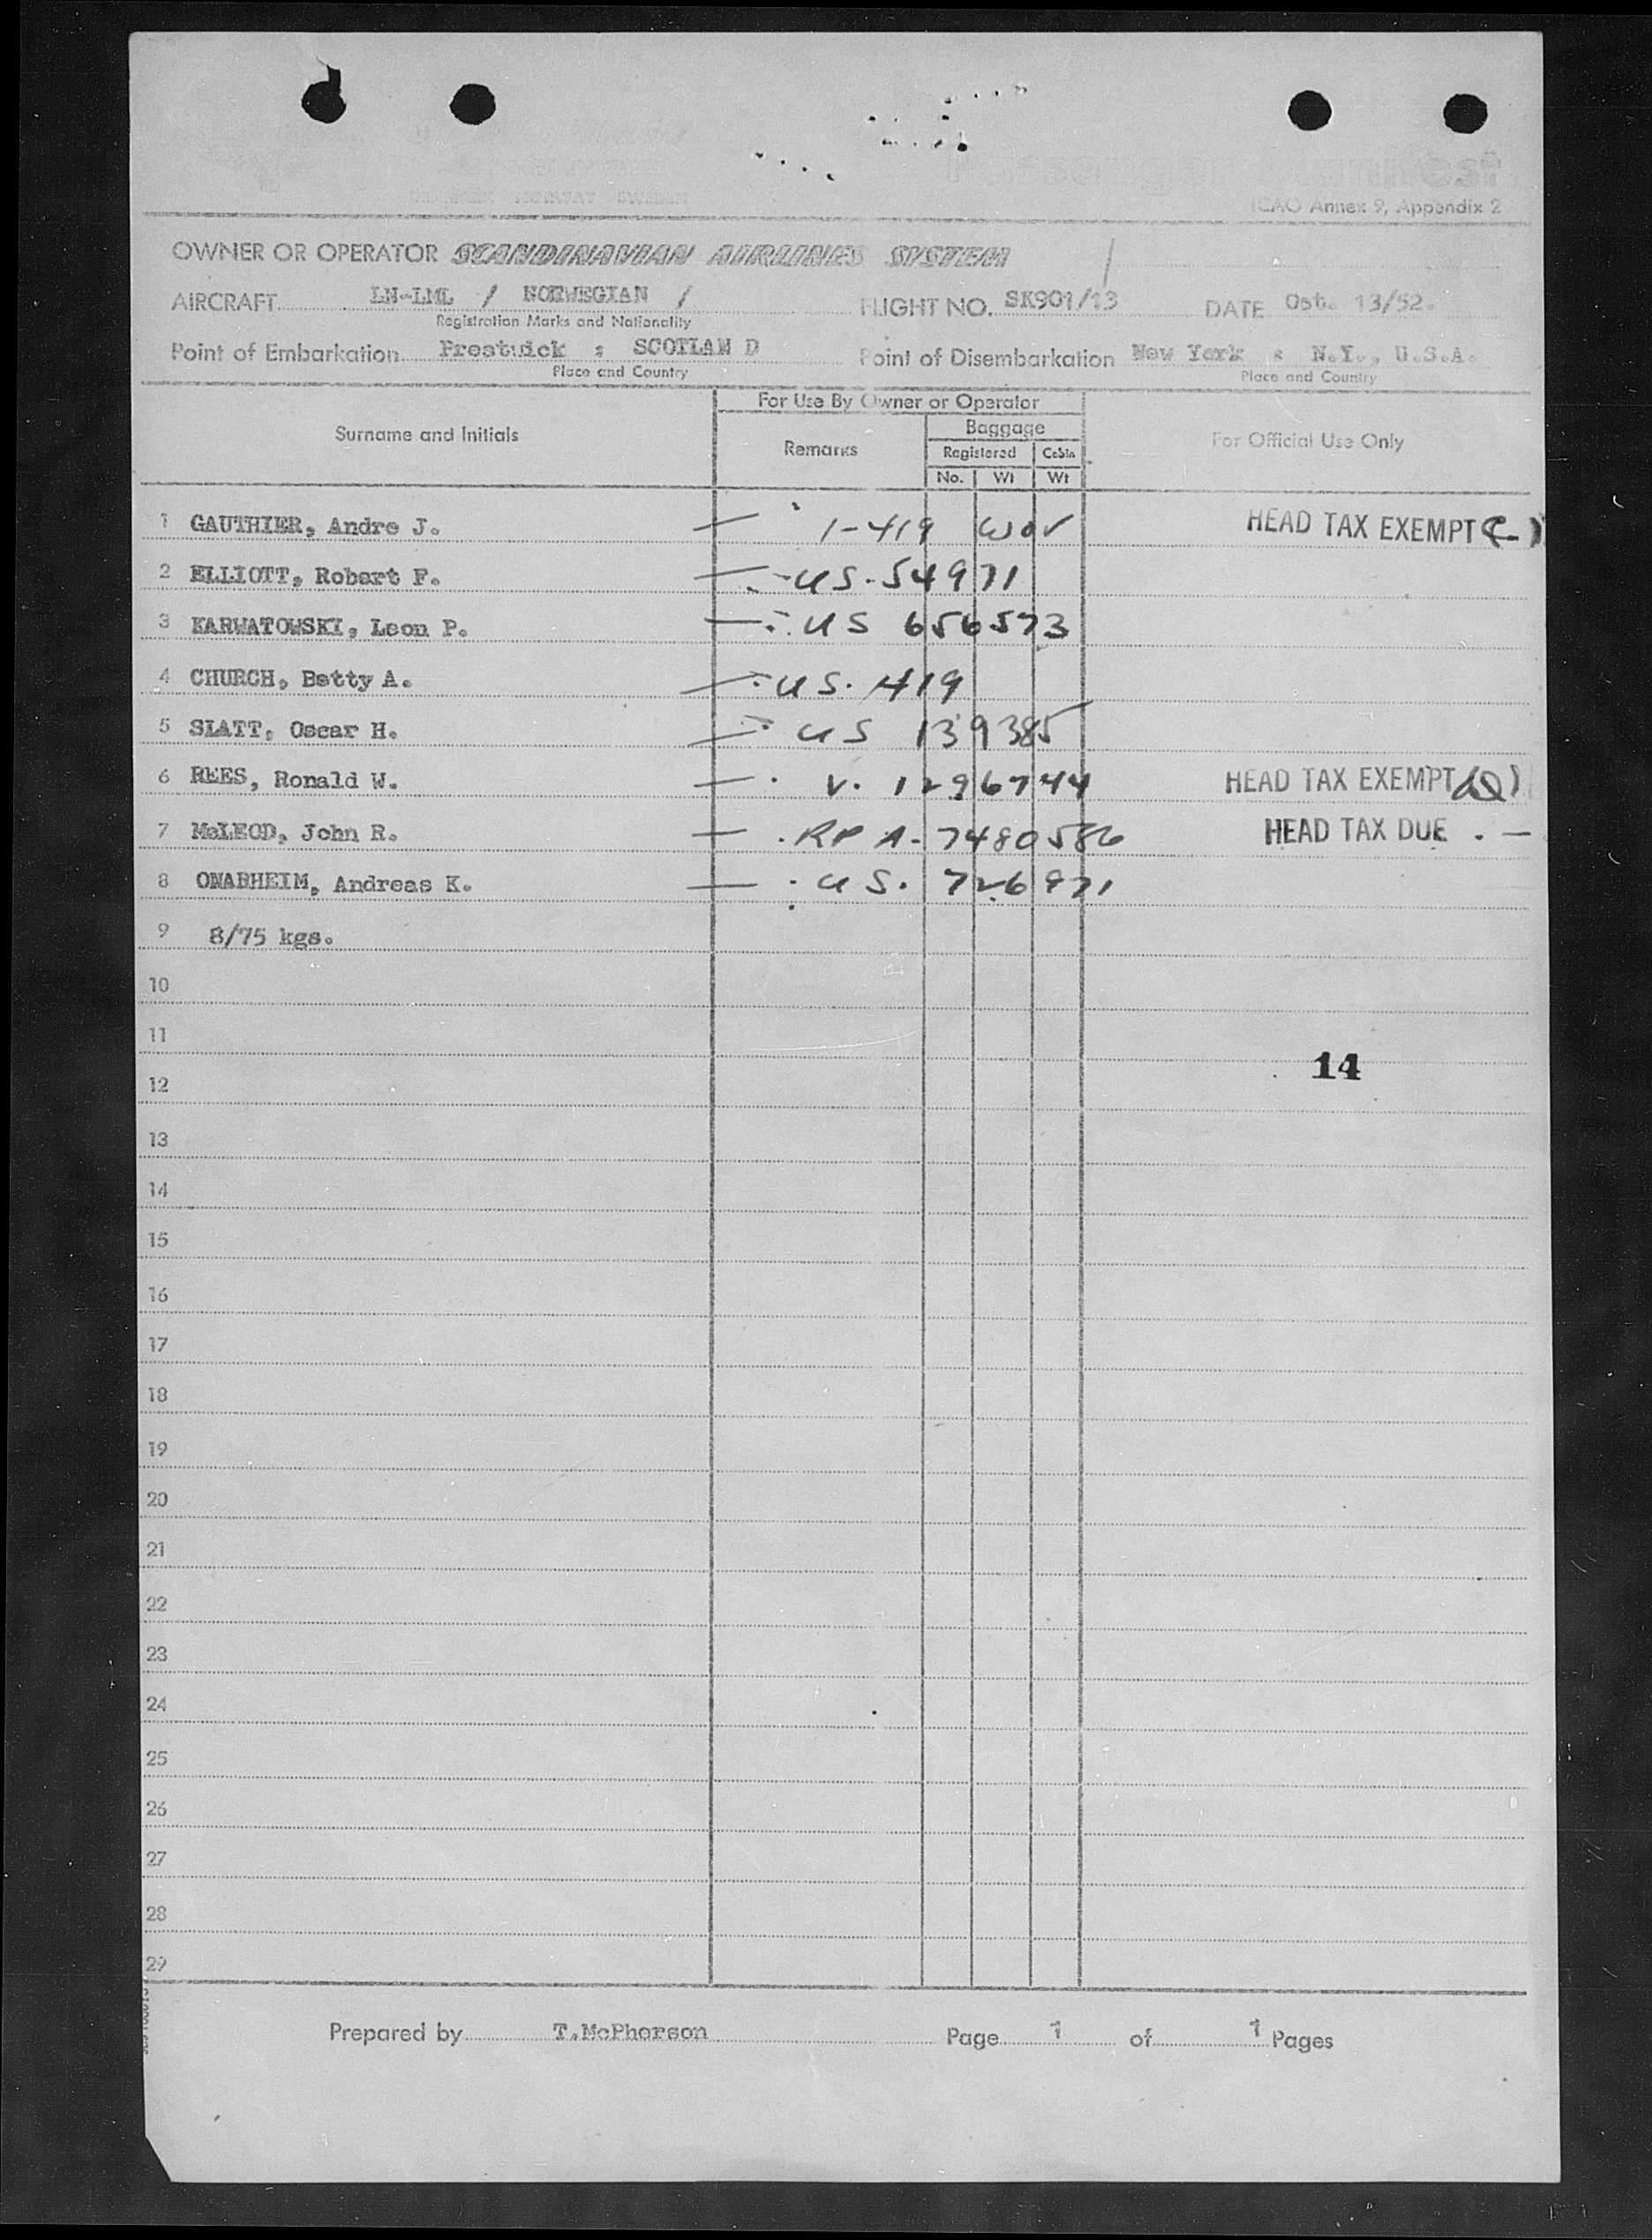 ICAO Annex 9, Appendix 2
OWNER OR OPERATOR SCANDINAVIAN AIRLINES SYSTEM
AIRCRAFT LN-LML / NORWEGIAN / FLIGHT NO. SK901/13 DATE Oct. 13/52.
Registration Marks and Nationality
Point of Embarkation Prestwick : SCOTLAN D Point of Disembarkation New York : N.Y., U.S.A.
Place and Country Place and Country
For Use By Owner or Operator
Surname and Initials Remarks Baggage For Official Use Only
Registered Cabin
No. Wt Wt
1 GAUTHIER, Andre J. 1-419 HEAD TAX EXEMPT
2 ELLIOTT, Robert F. US. 54971
3 KARWATOWSKI, Leon P. US 656573
4 CHURCH, Betty A. US. 1419
5 SLATT, Oscar H. US 139385
6 REES, Ronald W. V. 1296744 HEAD TAX EXEMPT
7 McLEOD, John R. RP A- 7480586 HEAD TAX DUE . —
8 ONARHEIM, Andreas K. US. 726971
9 8/75 kgs.
10
11
14
12
13
14
15
16
17
18
19
20
21
22
23
24
25
26
27
28
29
Prepared by T.McPherson Page 1 of 1 Pages